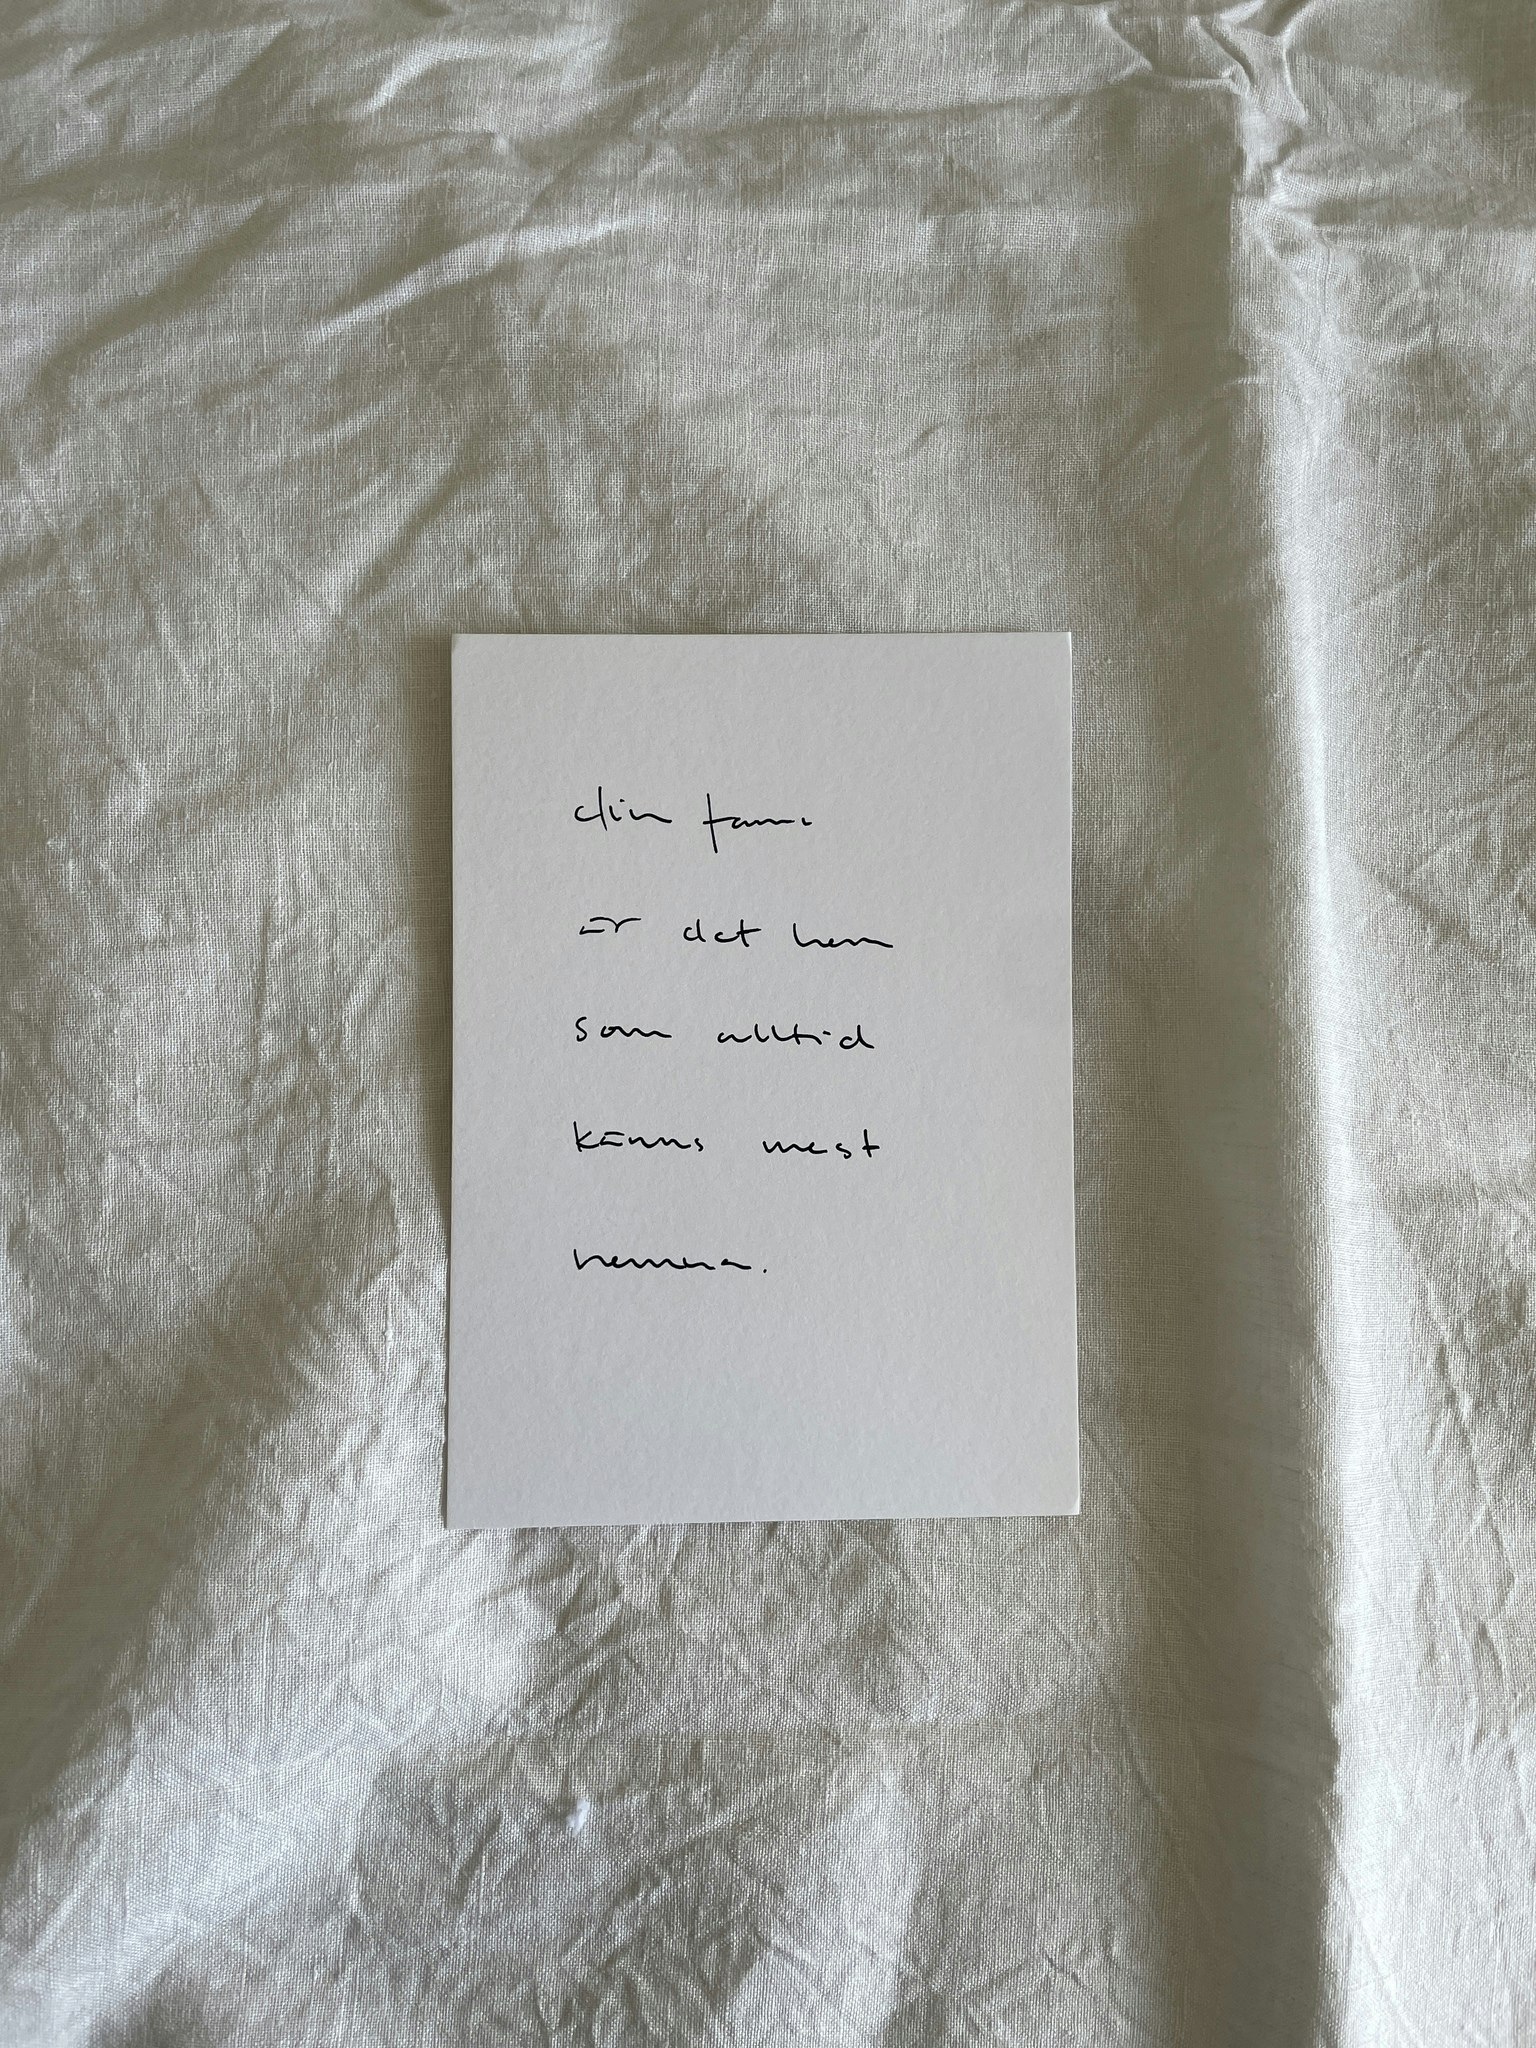 din famn
är det hem
som alltid
känns mest
hemma.